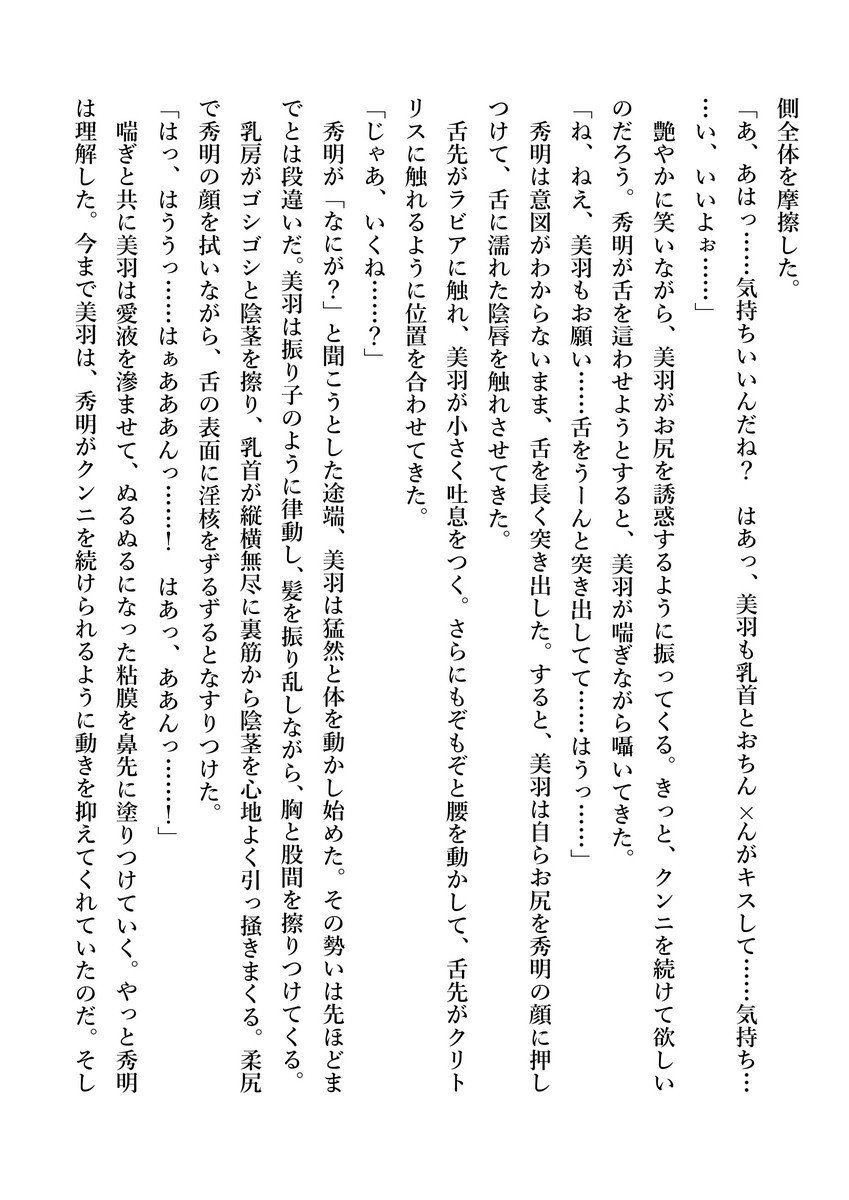 側全体を摩擦した。
「あ、あはっ……気持ちいいんだね？　はあっ、美羽も乳首とおちん×んがキスして……気持ち…
…い、いいよぉ……」
艶やかに笑いながら、美羽がお尻を誘惑するように振ってくる。きっと、クンニを続けて欲しい
のだろう。秀明が舌を這わせようとすると、美羽が喘ぎながら囁いてきた。
「ね、ねえ、美羽もお願い……舌をうーんと突き出してて……はうっ……」
秀明は意図がわからないまま、舌を長く突き出した。すると、美羽は自らお尻を秀明の顔に押し
つけて、舌に濡れた陰唇を触れさせてきた。
舌先がラビアに触れ、美羽が小さく吐息をつく。さらにもぞもぞと腰を動かして、舌先がクリト
リスに触れるように位置を合わせてきた。
「じゃあ、いくね……？」
秀明が「なにが？」と聞こうとした途端、美羽は猛然と体を動かし始めた。その勢いは先ほどま
でとは段違いだ。美羽は振り子のように律動し、髪を振り乱しながら、胸と股間を擦りつけてくる。
乳房がゴシゴシと陰茎を擦り、乳首が縦横無尽に裏筋から陰茎を心地よく引っ掻きまくる。柔尻
で秀明の顔を拭いながら、舌の表面に淫核をずるずるとなすりつけた。
「はっ、はううっ……はぁあああんっ……！　はあっ、ああんっ……！」
喘ぎと共に美羽は愛液を滲ませて、ぬるぬるになった粘膜を鼻先に塗りつけていく。やっと秀明
は理解した。今まで美羽は、秀明がクンニを続けられるように動きを抑えてくれていたのだ。そし